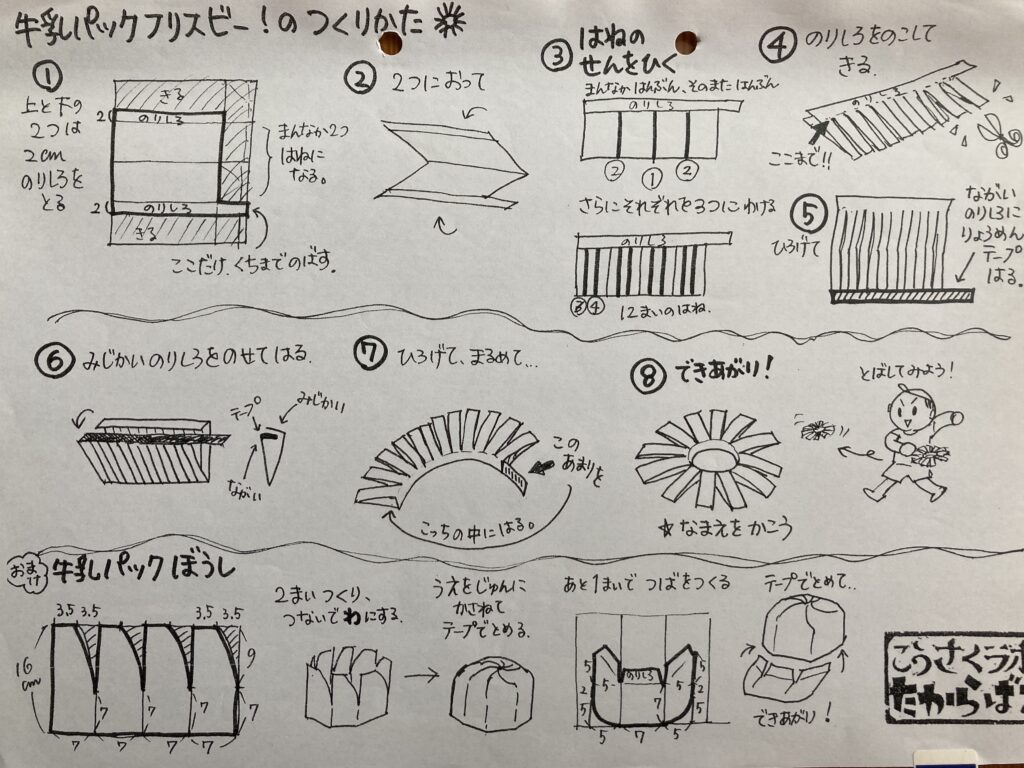 牛乳パックフリスビー！のつくりかた
①
上と下の
2つは
2cm
のりしろを
とる
きる
2
のりしろ
2
のりしろ
きる
まんなか2つ
はねに
なる。
ここだけ、くちまでのばす。
②
2つにおって
③
はねの
せんをひく
まんなか はんぶん、そのまた はんぶん
のりしろ
② ① ②
さらにそれぞれを3つにわける
のりしろ
③④
12まいのはね。
④
のりしろをのこして
きる。
のりしろ
ここまで!!
⑤
ひろげて
ながい
のりしろに
りょうめん
テープ
はる。
⑥
みじかいのりしろをのせてはる。
テープ
みじかい
ながい
⑦
ひろげて、まるめて…
この
あまりを
こっちの中にはる。
⑧
できあがり！
とばしてみよう！
☆なまえをかこう
おまけ
牛乳パックぼうし
3.5 3.5 3.5 3.5
16
cm
9
7 7 7 7
7 7 7
2まいつくり、
つないでわにする。
うえをじゅんに
かさねて
テープでとめる。
あと1まいでつばをつくる
のりしろ
5 5 5 5
2 2
5 5
5 7 5
テープでとめて…
できあがり！
こうさくラボ
たからばこ